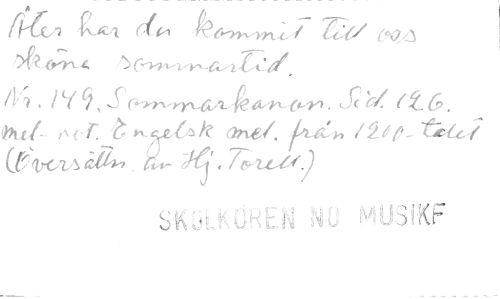 Åter har du kommit till oss
sköna sommartid.
Nr. 149. Sommarkanon. Sid. 126.
mel- not. Engelsk mel. från 1200-talet
(Översättn. av Hj. Torell.)
SKOLKÖREN NO MUSIKF